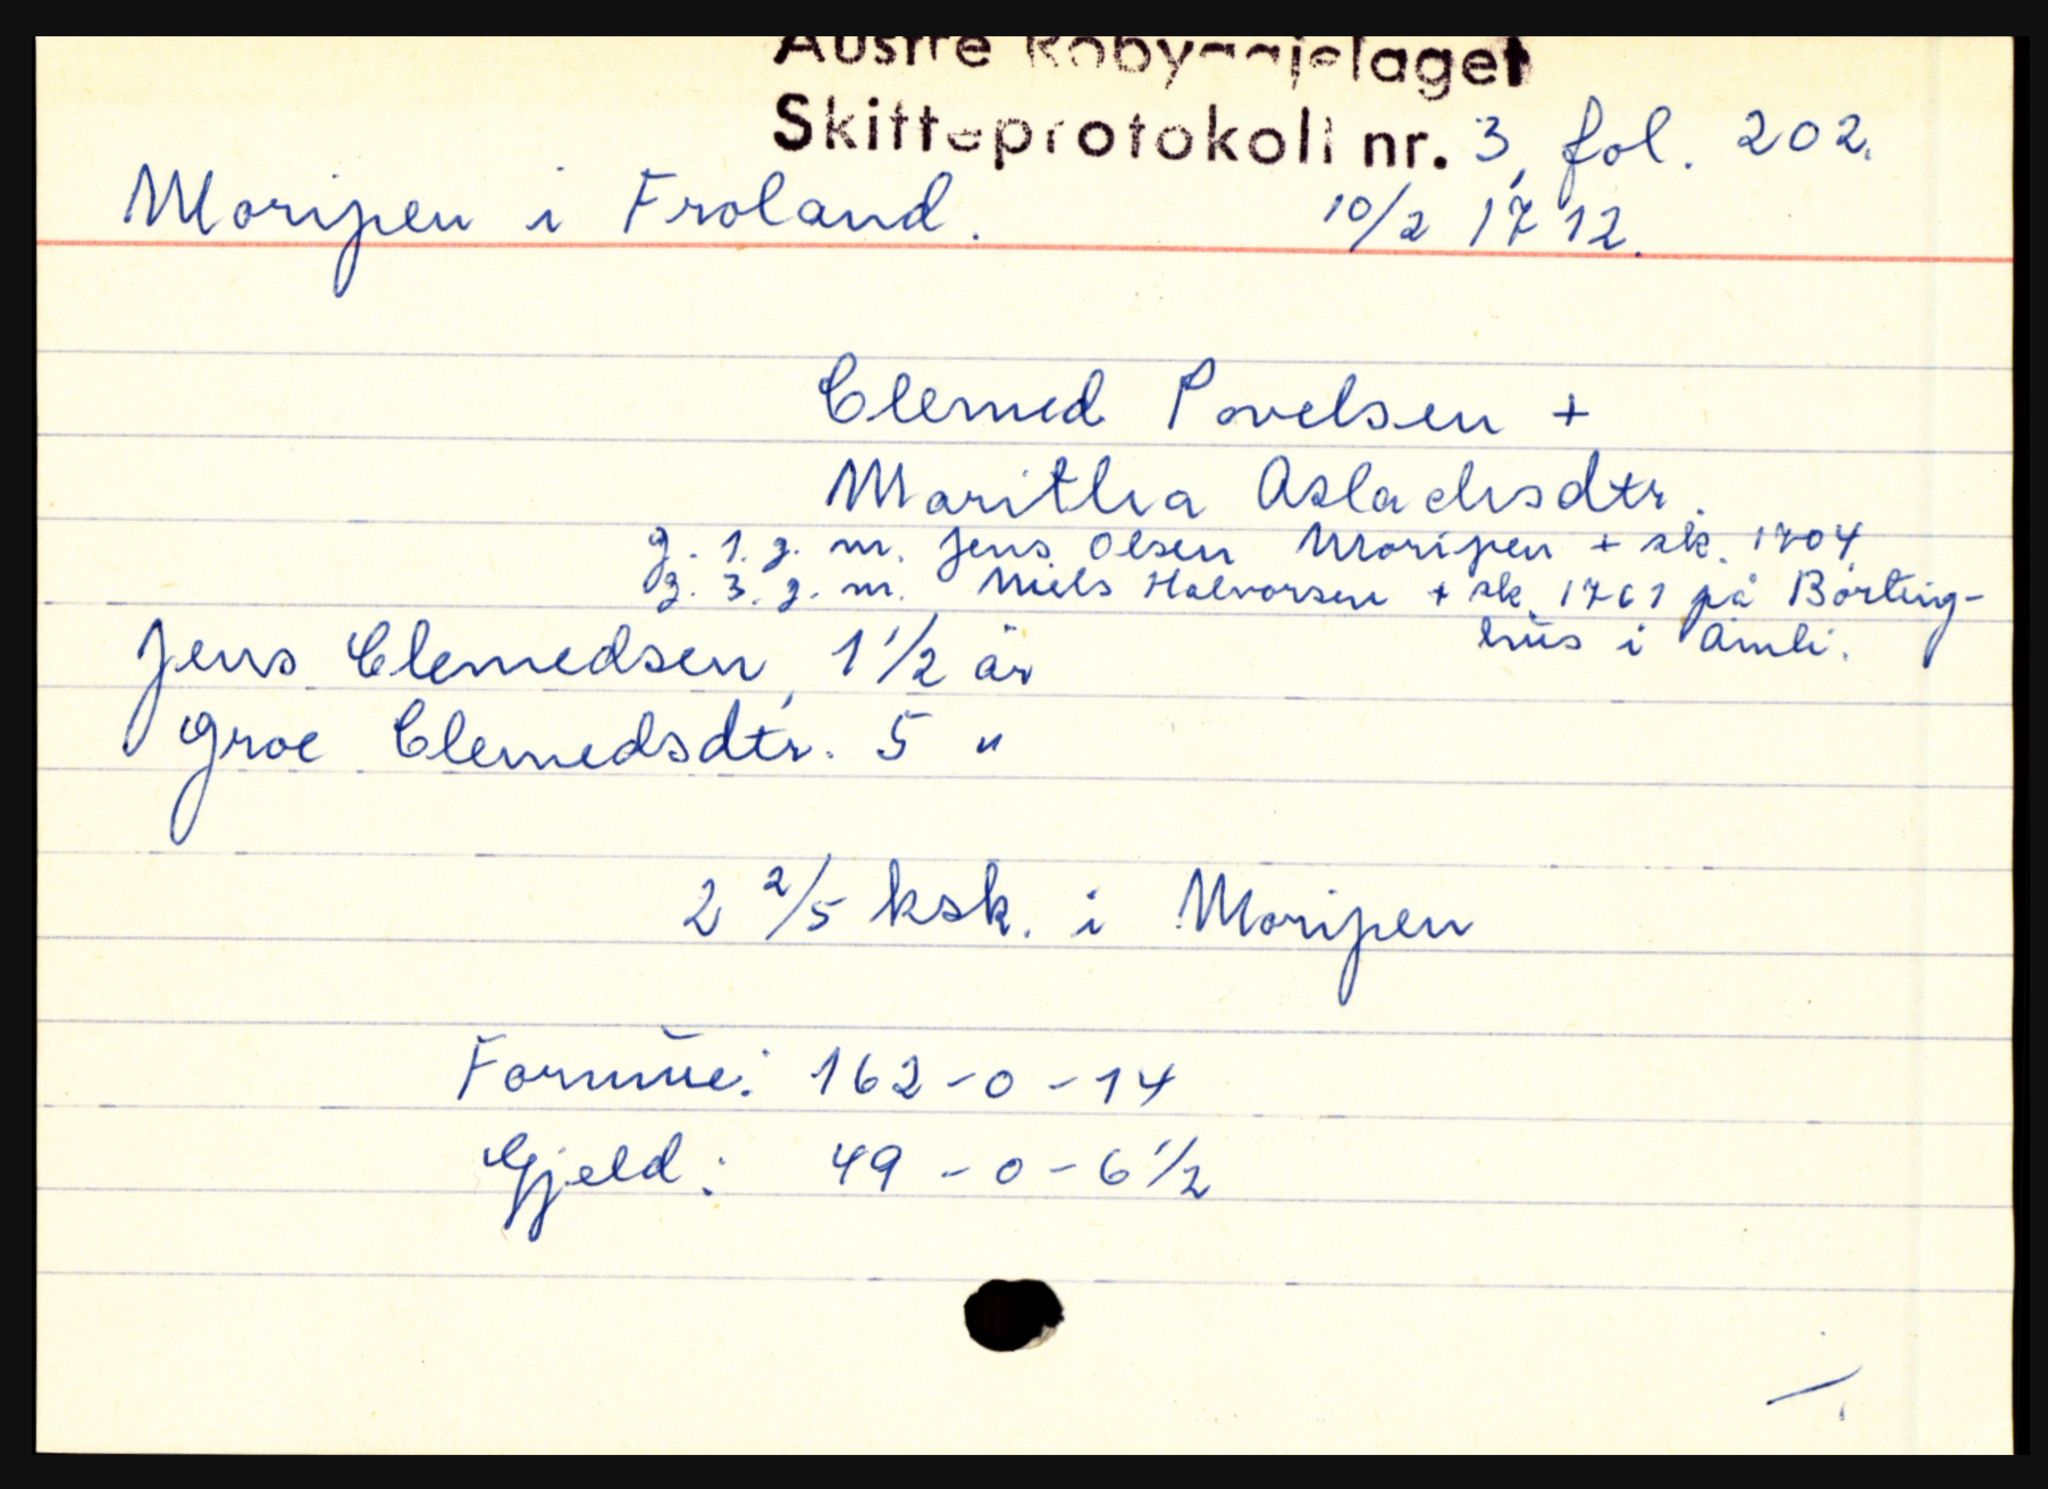 Austre Robyggjelaget
Skifteprotokoll nr. 3, fol. 202.
Moripen i Froland. 10/2 1712.
Clemed Povelsen +
Maritha Aslachsdtr.
g. 1. g. m. Jens Olsen Moripen + sk. 1704
g. 3. g. m. Niels Halvorsen + sk. 1761 på Børting-
hus i Åmli.
Jens Clemedsen, 1 1/2 år
Groe Clemedsdtr. 5 "
2 2/5 ksk. i Moripen
Formue: 162 - 0 - 14
Gjeld: 49 - 0 - 6 1/2